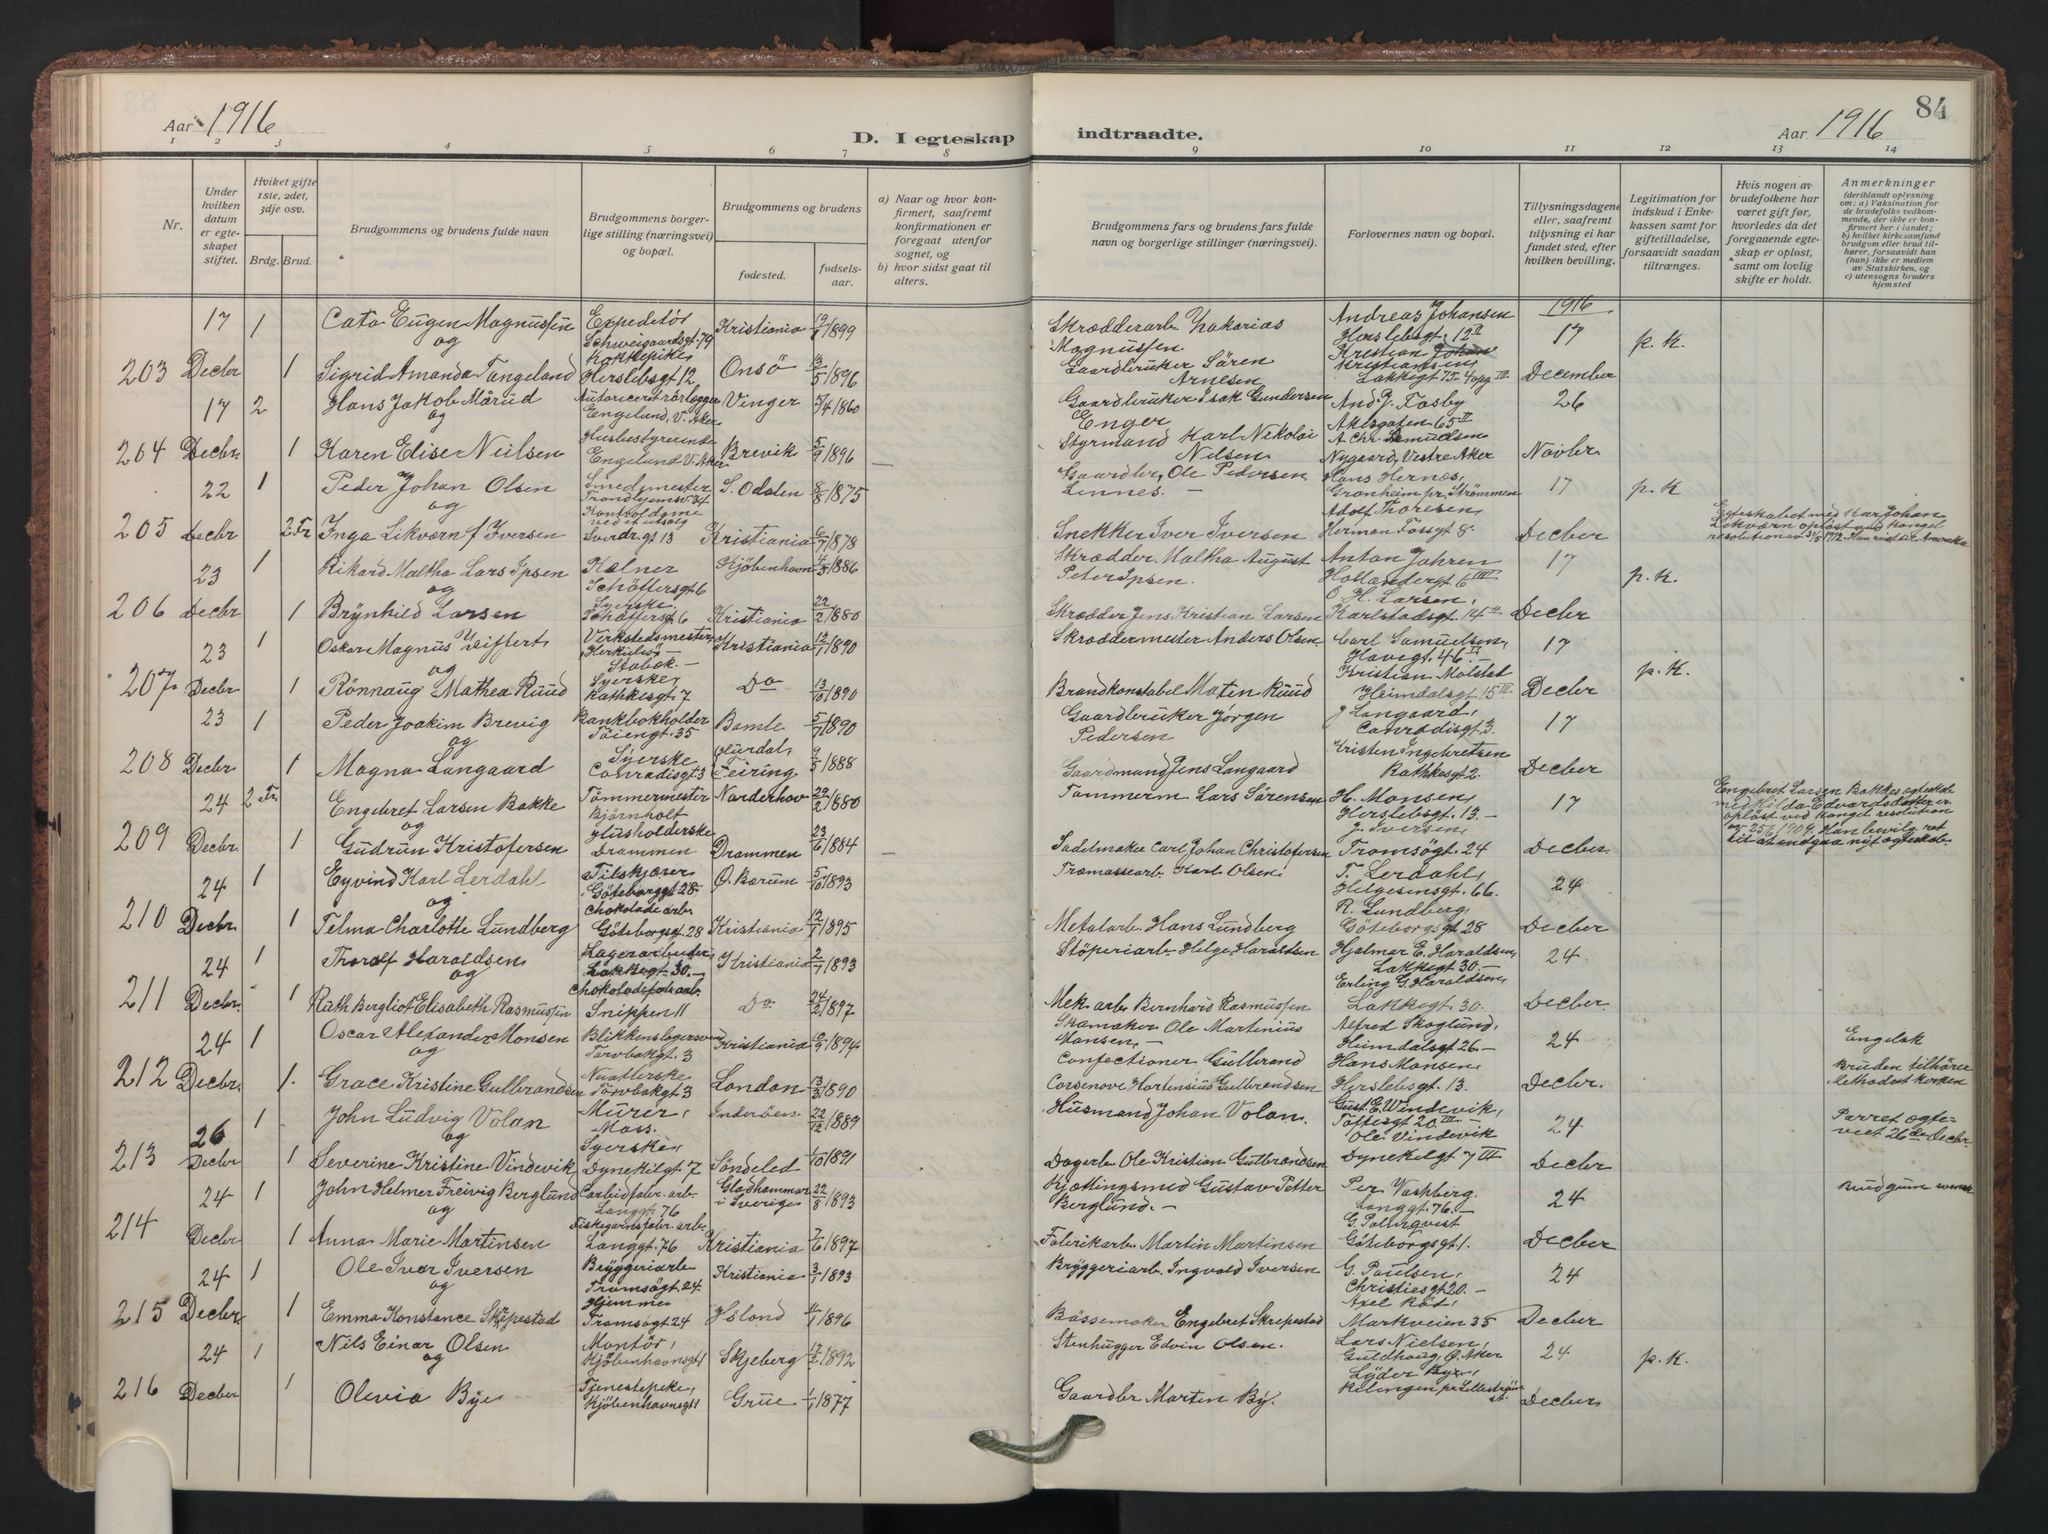 Aar 1916
D. I egteskap
indtraadte.
84
Aar 1916
1 2 3 4 5 6 7 8
9 10 11 12 13 14
Nr.
Under hvilken datum er egte-skapet stiftet.
Hviket gifte 1ste, 2det, 3dje osv.
Brdg. Brud.
Brudgommens og brudens fulde navn
Brudgommens borger-lige stilling (næringsvei) og bopæl.
Brudgommens og brudens
fødested.
fødsels-aar.
a) Naar og hvor kon-firmert, saafremt konfirmationen er foregaat utenfor sognet, og
b) hvor sidst gaat til alters.
Brudgommens fars og brudens fars fulde navn og borgerlige stillinger (næringsvei).
Forlovernes navn og bopæl.
Tillysningsdagene eller, saafremt tillysning ei har fundet sted, efter hvilken bevilling.
Legitimation for indskud i Enke-kassen samt for giftetilladelse, forsaavidt saadan tiltrænges.
Hvis nogen av brudefolkene har været gift før, hvorledes da det foregaaende egte-skap er opløst, samt om lovlig skifte er holdt.
Anmerkninger
(deriblandt oplysning om: a) Vaksination for de brudefolks vedkom-mende, der ikke er kon-firmert her i landet; b) hvilket kirkesamfund brudgom eller brud til-hører, forsaavidt han (hun) ikke er medlem av Statskirken, og c) utensogns bruders hjemsted
203 17 Decbr 1 Cato Eugen Magnussen Expeditør Schweigaardsgt. 79 Kristiania 1899 Skrædderarb Zakarias Magnussen Andreas Johansen Herslebsgt. 12 II 1916 17 December p. K.
og
1 Sigrid Amanda Tangeland Herslebsgt 12 Onsö 13/5 1896 Gaardbruker Sören Arnesen Kristian Kristiansen Lakkegt 75. 4 opg III
204 17 Decbr 2 Hans Jakob Mörud Autoriceret rörlægger Engelund, V. Aker Vinger 5/4 1860 Gaardbruker Isak Gundersen Enger And. J. Fosby Akersgaten 65 II 26 Novbr
og
1 Karen Elise Nielsen Husbestyrerinde Engelund V. Aker Brevik 5/9 1896 Styrmand Karl Nikolai Nilsen A. Chr. Samuelsen Nygaard, Vestre Aker
205 22 Decbr 1 Peder Johan Olsen Smedmester Trondhjemsv. 34 S. Odalen 8/8 1875 Gaardbr. Ole Pedersen Linnes. Hans Hernæs, Grönheim pr. Strömmen 17 Decbr p. K.
og
2. Fr Inga Likværn f Iversen Kontroldame ved et utsalg Sverdr. gt 13 Kristiania 6/7 1878 Snekker Iver Iversen Adolf Thoresen, Herman Fossgt 8. Egteskabet med Kar Johan Likværn opløst ved kongel. resolution av 31/5 1912.
206 23 Decbr 1 Rikard Maltha Lars Ipsen Kelner Schöttersgt 6 Kjöbenhavn 4/3 1886 Skrædder Maltha August Peter Ipsen. Anton Johren Hollendergt 6 III 17 Decbr p. K.
og
1 Brynhild Larsen Syerske, Kristiania 22/2 1880 Skrædder Jens Kristian Larsen O. H. Larsen, Karlstadsgt. 14 II
207 23 Decbr 1 Oskar Magnus Seiffert Virkstedsmester Herkules Stabæk. Kristiania 12/1 1890 Skræddermester Anders Olsen. Carl Samuelsen, Havegt. 46 II 17 Decbr p. K.
og
1 Rönnaug Mathea Ruud Syerske, Rathkesgt 7 Do 13/10 1890 Brandkonstabel Martin Ruud Kristian Molstad Heimdalsgt 15 III
208 23 Decbr 1 Peder Joakim Brevig Bankbokholder Töiengt. 35 Bamle 5/7 1890 Gaardbruker Jörgen Pedersen J Langaard, Conradisgt. 3 17 Decber
og
1 Magna Langaard Syerske Conradisgt. 3 Hurdal, Feiring 9/5 1888 Gaardmand Jens Langaard Kristen Ingebretsen Rathkesgt 2.
209 24 Decbr 2 Fr Engebret Larsen Bakke Tömmermester Björnholt Norderhov 22/2 1880 Tømmerm Lars Sörensen H. Monsen, Herslebsgt. 13. 17 Decber. Engebret Larsen Bakkes egteskab med Hilda Edvardsdatter er opløst ved kongel. resolution av 25/6 1909. Han bevilg. ret til at indgaa nyt egteskab.
og
1 Gudrun Kristofersen Husholderske Drammen Drammen 23/6 1884 Sadelmaker Carl Johan Christofersen J. Iversen, Tromsögt. 24
210 24 Decbr. 1 Eyvind Karl Lerdahl Filskjærer Göteborggt 28 Ø. Bærum 5/10 1893 Karl Olsen T. Lerdahl, Helgesensgt. 66. 24 Decber
og
1 Telma Charlotte Lundberg Chokoladearb Göteborgsgt 28 Kristiania 12/1 1895 Metalarb. Hans Lundberg R. Lundberg, Göteborgsgt 28
211 24 Decbr. 1 Thoralf Haraldsen Lagerarbeider, Lakkegt 30. Kristiania 2/7 1893 Støperiarb. Helge Haraldsen Hjalmar E. Haraldsen Lakkegt 30. 24 Decber
og
1 Ruth Bergliot Elisabeth Rasmussen Chokoladefabr. arb. Snippen 11 Do 24/2 1897 Mek. arb Bernhard Rasmussen Erling G. Haraldsen, Lakkegt. 30.
212 24 Decbr. 1 Oscar Alexander Monsen Blikkenslagersvend Torvbakgt. 3 Kristiania 10/9 1894 Skomaker Ole Martinius Monsen. Alfred Skoglund, Heimdalsgt 26 24 Decber. Engelsk
og
1. Grace Kristine Gulbrandsen Torvbakgt 3 London 13/3 1890 Confectioner Gulbrand Hortensius Gulbrandsen Hans Monsen, Herslebsgt. 13. Bruden tilhörer Methodistkirken
213 26 Decbr 1 John Ludvig Volan Murer, Moss. Inderöen 22/12 1889 Husmand Johan Volan. Gust. E. Vindevik, Toftesgt 20 III 24 Decber Parret egte-viet 26de Decbr.
og
1 Severine Kristine Vindevik Syerske, Dynekilgt 7 Söndeled 1891 Dagarb. Ole Kristian Gulbrandsen Ole Vindevik Dynekilgt 7 III
214 24 Decbr 1 John Helmer Freivig Berglund Carbidfabr. arb. Langgt. 76 Gladhammar i Sverige 22/8 1893 Kjættingsmed Gustav Petter Berglund. Per Vashberg. Langgt. 76. 24 Decber Brudgum svensk
og
1 Anna Marie Martinsen Fiskegarnsfabr. arb. Langgt. 76 Kristiania 7/6 1897 Fabrikarb Martin Martinsen G. Palmqvist Göteborgsgt 1.
215 24 Decbr 1 Ole Ivar Iversen Bryggeriarb Tromsögt. 24. Kristiania 3/1 1893 Bryggeriarb. Ingvald Iversen G. Paulsen, Christiesgt 20. 24 Decber
og
1 Emma Konstance Skrepestad Hjemme Tromsögt 24 Höland 4/1 1896 Bössemaker Engebret Skrepestad Axel Röd, Markveien 35
216 24 Decber 1 Nils Einar Olsen Montör, Kjöbenhavnsgt 1 Skjeberg 17/2 1892 Stenhugger Edvin Olsen. Lars Nielsen, Guldhaug, Ø. Aker 24 Decber p. K.
og
1 Olevia Bye Tjenestepike, Kjöbenhavnsgt 1 Grue 1/1 1877 Gaardbr Martin By. Lyder Bye, Relingen pr. Lilleström st.